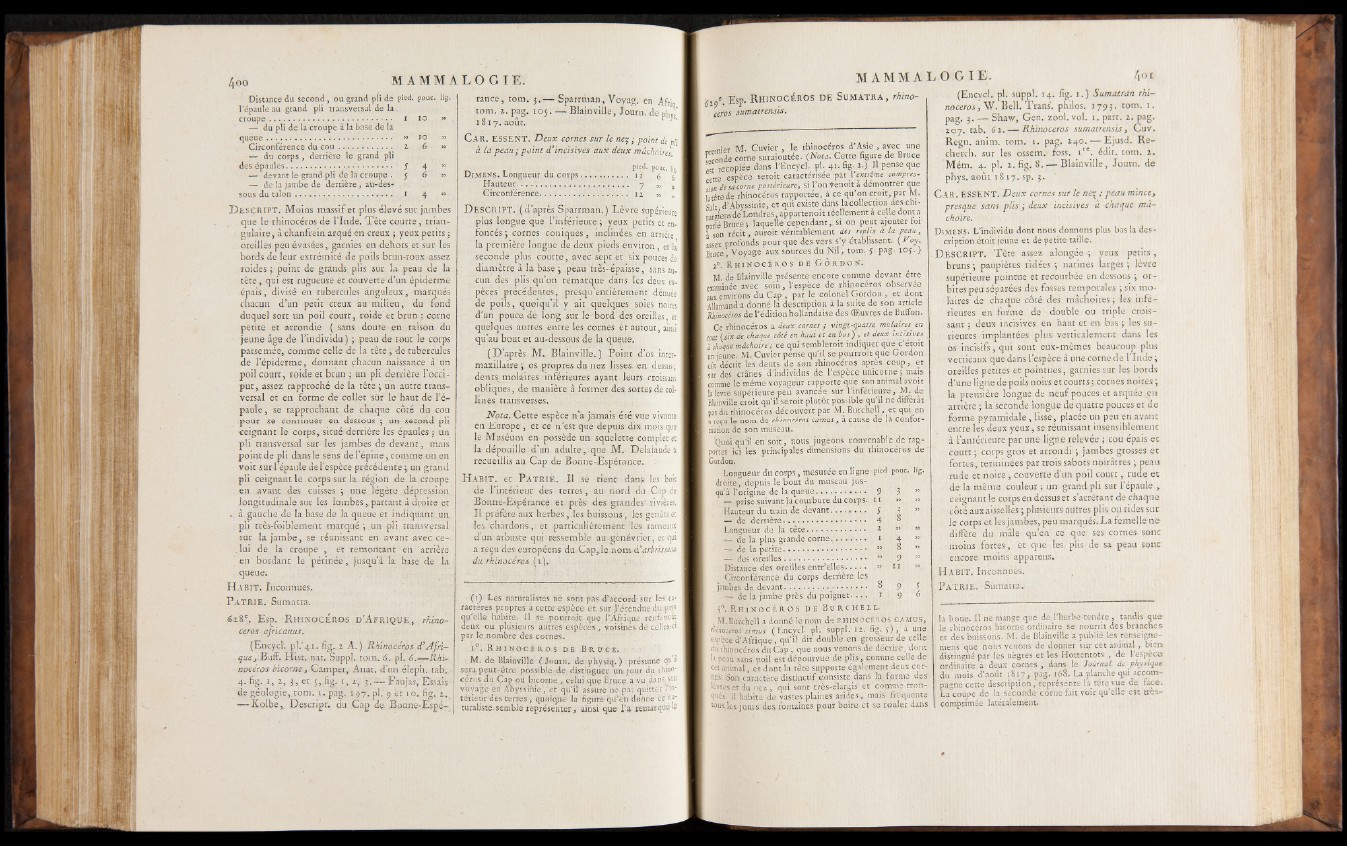 400 MAMMALOGIE.
Distance du second, ou grand pli de pied. pouc. lig.
l'épaule au grand pli transversal de la
croupe 1 10 »
— du pli de la croupe à la base de la
queue » 10 »
Circonférence du cou 2 6 »
— du corps, derrière le grand pli
des épaules 5 4 »
— devant le grand pli de la croupe 5 6 »
— de la jambe de derrière, au-des-
sous du talon 1 4 »
DESCRIPT. Moins massif et plus élevé sur jambes
que le rhinocéros de l'Inde. Tête courte, trian-
gulaire, à chanfrein arqué en creux; yeux petits;
oreilles peu évasées, garnies en dehors et sur les
bords de leur extrémité de poils brun-roux assez
roides; point de grands plis sur la peau de la
tête, qui est rugueuse et couverte d'un épiderme
épais, divisé en tubercules anguleux, marqués
chacun d'un petit creux au milieu, du fond
duquel sort un poil court, roide et brun; corne
petite et arrondie (sans doute en raison du
jeune âge de l'individu); peau de tout le corps
parsemée, comme celle de la tête, de tubercules
de l'épiderme, donnant chacun naissance à un
poil court, roide et brun; un pli derrière l'occi-
put, assez rapproché de la tête; un autre trans-
versal et en forme de collet sur le haut de l'é-
paule, se rapprochant de chaque côté du cou
pour se continuer en dessous; un second pli
ceignant le corps, situé derrière les épaules; un
pli transversal sur les jambes de devant, mais
point de pli dans le sens de l'épine, comme on en
voit sur l'épaule de l'espèce précédente; un grand
pli ceignant le corps sur la région de la croupe
en avant des cuisses; une légère dépression
longitudinale sur les lombes, partant à droite et
à gauche de la base de la queue et indiquant un
pli très-foiblement marqué; un pli transversal
sur la jambe, se réunissant en avant avec ce-
lui de la croupe, et remontant en arrière
en bordant le périnée, jusqu'à la base de la
queue.
HABIT. Inconnues.
PATRIE. Sumatra.
628e. Esp. RHINOCÉROS D'AFRIQUE, rhino-
ceros africanus.
(Encycl. pl. 41. fig. 2 A.) Rhinocéros d'Afri-
que, Buff. Hist. nat. Suppl. tom. 6. pl. 6. — Rhi-
nocéros bicorne, Camper, Anat. d'un éleph. tab.
4. fig. 1, 2, 3, et 5, fig. 1, 2, 3. — Faujas, Essais
de géologie, tom. 1. pag. 197. pl. 9 et 10. fig. 2.
— Kolbe, Descript. du Cap de Bonne-Espé-
rance, tom. 3. — Sparrman, Voyag. en Afriq.
tom. 2. pag. 105. — Blainville, Journ. de phys.
1817. août.
CAR. ESSENT. Deux cornes sur le nez; point de pli
à la peau; point d'incisives aux deux mâchoires.
pied. pouc. lig.
DIMENS. Longueur du corps 12 6
Hauteur 7 »
Circonférence 12 »
DESCRIPT. (d'après Sparrman.) Lèvre supérieure
plus longue que l'inférieure; yeux petits et en-
foncés; cornes coniques, inclinées en arrière,
la première longue de deux pieds environ, et la
seconde plus courte, avec sept et six pouces de
diamètre à la base; peau très-épaisse, sans au-
cun des plis qu'on remarque dans les deux es-
pèces précédentes, presqu'entièrement dénuée
de poils, quoiqu'il y ait quelques soies noires
d'un pouce de long sur le bord des oreilles, et
quelques autres entre les cornes et autour, ainsi
qu'au bout et au-dessous de la queue.
(D'après M. Blainville.) Point d'os inter-
maxillaire; os propres du nez lisses en dessus;
dents molaires inférieures ayant leurs croissans
obliques, de manière à former des sortes de col-
lines transverses.
Nota. Cette espèce n'a jamais été vue vivante
en Europe, et ce n'est que depuis dix mois que
le Muséum en possède un squelette complet et
la dépouille d'un adulte, que M. Delalande a
recueillis au Cap de Bonne-Espérance.
HABIT. et PATRIE. Il se tient dans les bois
de l'intérieur des terres, au nord du Cap de
Bonne-Espérance et près des grandes rivières.
Il préfère aux herbes, les buissons, les genêts et
les chardons, et particulièrement les rameaux
d'un arbuste qui ressemble au genévrier, et qui
a reçu des européens du Cap, le nom d'arbrisseau
du rhinocéros (1).
(1) Les naturalistes ne sont pas d'accord sur les ca-
ractères propres à cette espèce et sur l'étendue du pays
qu'elle habite. Il se pourroit que l'Afrique renfermât
deux ou plusieurs autres espèces, voisines de celle-ci
par le nombre des cornes.
1°. RHINOCÉROS DE BRUCE.
M. de Blainville (Journ. de physiq.) présume qu'il
sera peut-être possible de distinguer un jour du rhino-
céros du Cap ou bicorne, celui que Bruce a vu dans son
voyage en Abyssinie, et qu'il assure ne pas quitter l'in-
térieur des terres, quoique la figure qu'en donne ce na-
turaliste semble représenter, ainsi que l'a remarqué le
MAMMALOGIE. 401
629e. Esp. RHINOCÉROS DE SUMATRA, rhino-
ceros sumatrensis.
premier M. Cuvier, le rhinocéros d'Asie, avec une
seconde corne surajoutée. (Nota. Cette figure de Bruce
est recopiée dans l'Encycl. pl. 41. fig. 2.) Il pense que
cette espèce seroit caractérisée par l'extrême compres-
sion de sa corne postérieure, si l'on venoit à démontrer que
la tête de rhinocéros rapportée, à ce qu'on croit, par M.
Salt, d'Abyssinie, et qui existe dans la collection des chi-
rurgiens de Londres, appartenoit réellement à celle dont a
parlé Bruce; laquelle cependant, si on peut ajouter foi
à son récit, auroit véritablement des replis à la peau,
assez profonds pour que des vers s'y établissent. (Voy.
Bruce, Voyage aux sources du Nil, tom. 5. pag. 105.)
2°. RHINOCÉROS DE GORDON.
M. de Blainville présente encore comme devant être
examinée avec soin, l'espèce de rhinocéros observée
aux environs du Cap, par le colonel Gordon, et dont
Allamand a donné la description à la suite de son article
Rhinocéros de l'édition hollandaise des Œuvres de Buffon.
Ce rhinocéros a deux cornes; vingt-quatre molaires en
tout (six de chaque côté en haut et en bas), et deux incisives
à chaque mâchoire; ce qui sembleroit indiquer que c'étoit
un jeune. M. Cuvier pense qu'il se pourroit que Gordon
eût décrit les dents de son rhinocéros après coup, et
sur des crânes d'individus de l'espèce unicorne; mais
comme le même voyageur rapporte que son animal avoit
la lèvre supérieure peu avancée sur l'inférieure, M. de
Blainville croit qu'il seroit plutôt possible qu'il ne différât
pas du rhinocéros découvert par M. Burchell, et qui en
a reçu le nom de rhinoceros camus, à cause de la confor-
mation de son museau.
Quoi qu'il en soit, nous jugeons convenable de rap-
porter ici les principales dimensions du rhinocéros de
Gordon.
Longueur du corps, mesurée en ligne pied pouc. lig.
droite, depuis le bout du museau jus-
qu'à l'origine de la queue 9 3 »
— prise suivant la courbure du corps. 11 » »
Hauteur du train de devant 5 2 »
— de derrière 4 8
Longueur de la tête 2 » »
— de la plus grande corne 1 4 »
— de la petite » 8 »
— des oreilles » 9 »
Distance des oreilles entr'elles » 11 »
Circonférence du corps derrière les
jambes de devant 8 9 5
— de la jambe près du poignet 1 9 6
3°. RHINOCÉROS DE BURCHELL.
M. Burchell a donné le nom de RHINOCÉROS CAMUS,
rhinoceros simus (Encycl. pl. suppl. 12. fig. 5), à une
espèce d'Afrique, qu'il dit double en grosseur de celle
du rhinocéros du Cap, que nous venons de décrire, dont
la peau sans poil est dépourvue de plis, comme celle de
cet animal, et dont la tête supporte également deux cor-
nes. Son caractère distinctif consiste dans la forme des
lèvres et du nez, qui sont très-élargis et comme tron-
qués. Il habite de vastes plaines arides, mais fréquente
tous les jours des fontaines pour boire et se rouler dans
(Encycl. pl. suppl. 14. fig. 1.) Sumatran rhi-
noceros, W. Bell, Trans. philos. 1793. tom. 1.
pag. 3. — Shaw, Gen. zool. vol. 1. part. 2. pag.
207. tab. 62. — Rhinoceros sumatrensis, Cuv.
Regn. anim. tom. 1. pag. 240. — Ejusd. Re-
cherch. sur les ossem. foss. 1re. édit. tom. 2.
Mém. 4. pl. 2. fig. 8. — Blainville, Journ. de
phys. août 1817. sp. 3.
CAR. ESSENT. Deux cornes sur le nez; peau mince,
presque sans plis; deux incisives à chaque mâ-
choire.
DIMENS. L'individu dont nous donnons plus bas la des-
cription étoit jeune et de petite taille.
DESCRIPT. Tête assez alongée; yeux petits,
bruns; paupières ridées; narines larges; lèvre
supérieure pointue et recourbée en dessous; or-
bites peu séparées des fosses temporales; six mo-
laires de chaque côté des mâchoires; les infé-
rieures en forme de double ou triple crois-
sant; deux incisives en haut et en bas; les su-
rieures implantées plus verticalement dans les
os incisifs, qui sont eux-mêmes beaucoup plus
verticaux que dans l'espèce à une corne de l'Inde;
oreilles petites et pointues, garnies sur les bords
d'une ligne de poils noirs et courts; cornes noires;
la première longue de neuf pouces et arquée en
arrière; la seconde longue de quatre pouces et de
forme pyramidale, lisse, placée un peu en avant
entre les deux yeux, se réunissant insensiblement
à l'antérieure par une ligne relevée; cou épais et
court; corps gros et arrondi; jambes grosses et
fortes, terminées par trois sabots noirâtres; peau
rude et noire, couverte d'un poil court, rude et
de la même couleur; un grand pli sur l'épaule,
ceignant le corps en dessus et s'arrêtant de chaque
côté aux aisselles; plusieurs autres plis ou rides sur
le corps et les jambes, peu marqués. La femelle ne
diffère du mâle qu'en ce que ses cornes sont
moins fortes, et que les plis de sa peau sont
encore moins apparens.
HABIT. Inconnues.
PATRIE. Sumatra.
la boue. Il ne mange que de l'herbe tendre, tandis que
le rhinocéros bicorne ordinaire se nourrit des branches
et des buissons. M. de Blainville a publié les renseigne-
mens que nous venons de donner sur cet animal, bien
distingué par les nègres et les Hottentots, de l'espèce
ordinaire à deux cornes, dans le Journal de physique
du mois d'août 1817, pag. 168. La planche qui accom-
pagne cette description, représente la tête vue de face.
La coupe de la seconde corne fait voir qu'elle est très-
comprimée latéralement.